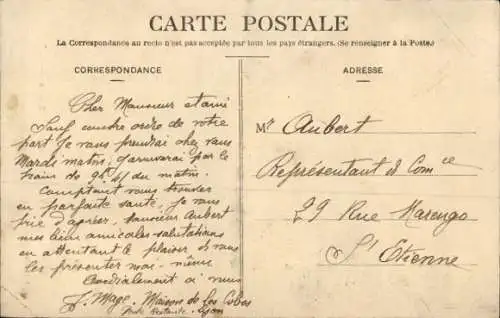 CARTE POSTALE
La Correspondance au recto n'est pas acceptée par tous les pays étrangers. (Se renseigner à la Poste.)
CORRESPONDANCE
Cher Monsieur et ami
Sauf contre ordre de votre
part je vous prendrai chez vous
Mardi matin; j'arriverai par le
train de 9h du matin.
Comptant vous trouver
en parfaite santé, je vous
prie d'agréer, Monsieur Aubert
mes bien amicales salutations
en attendant le plaisir de vous
les présenter moi-même
Cordialement à vous
F. Mage, Maison de
Poste Restante Lyon
ADRESSE
Mr Aubert
Représentant d Comce
29 Rue Marengo
St Etienne